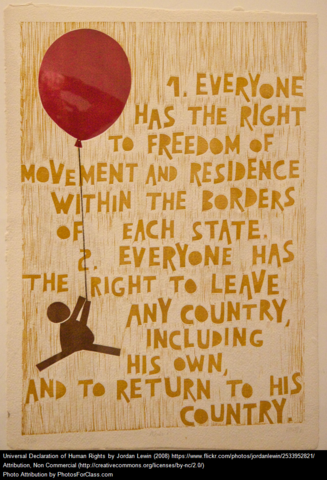 1. EVERYONE
HAS THE RIGHT
TO FREEDOM OF
MOVEMENT AND RESIDENCE
WITHIN THE BORDERS
OF EACH STATE.
2. EVERYONE HAS
THE RIGHT TO LEAVE
ANY COUNTRY,
INCLUDING
HIS OWN,
AND TO RETURN TO HIS
COUNTRY.
Universal Declaration of Human Rights by Jordan Lewin (2008) https://www.flickr.com/photos/jordanlewin/2533952821/
Attribution, Non Commercial (http://creativecommons.org/licenses/by-nc/2.0/)
Photo Attribution by PhotosForClass.com